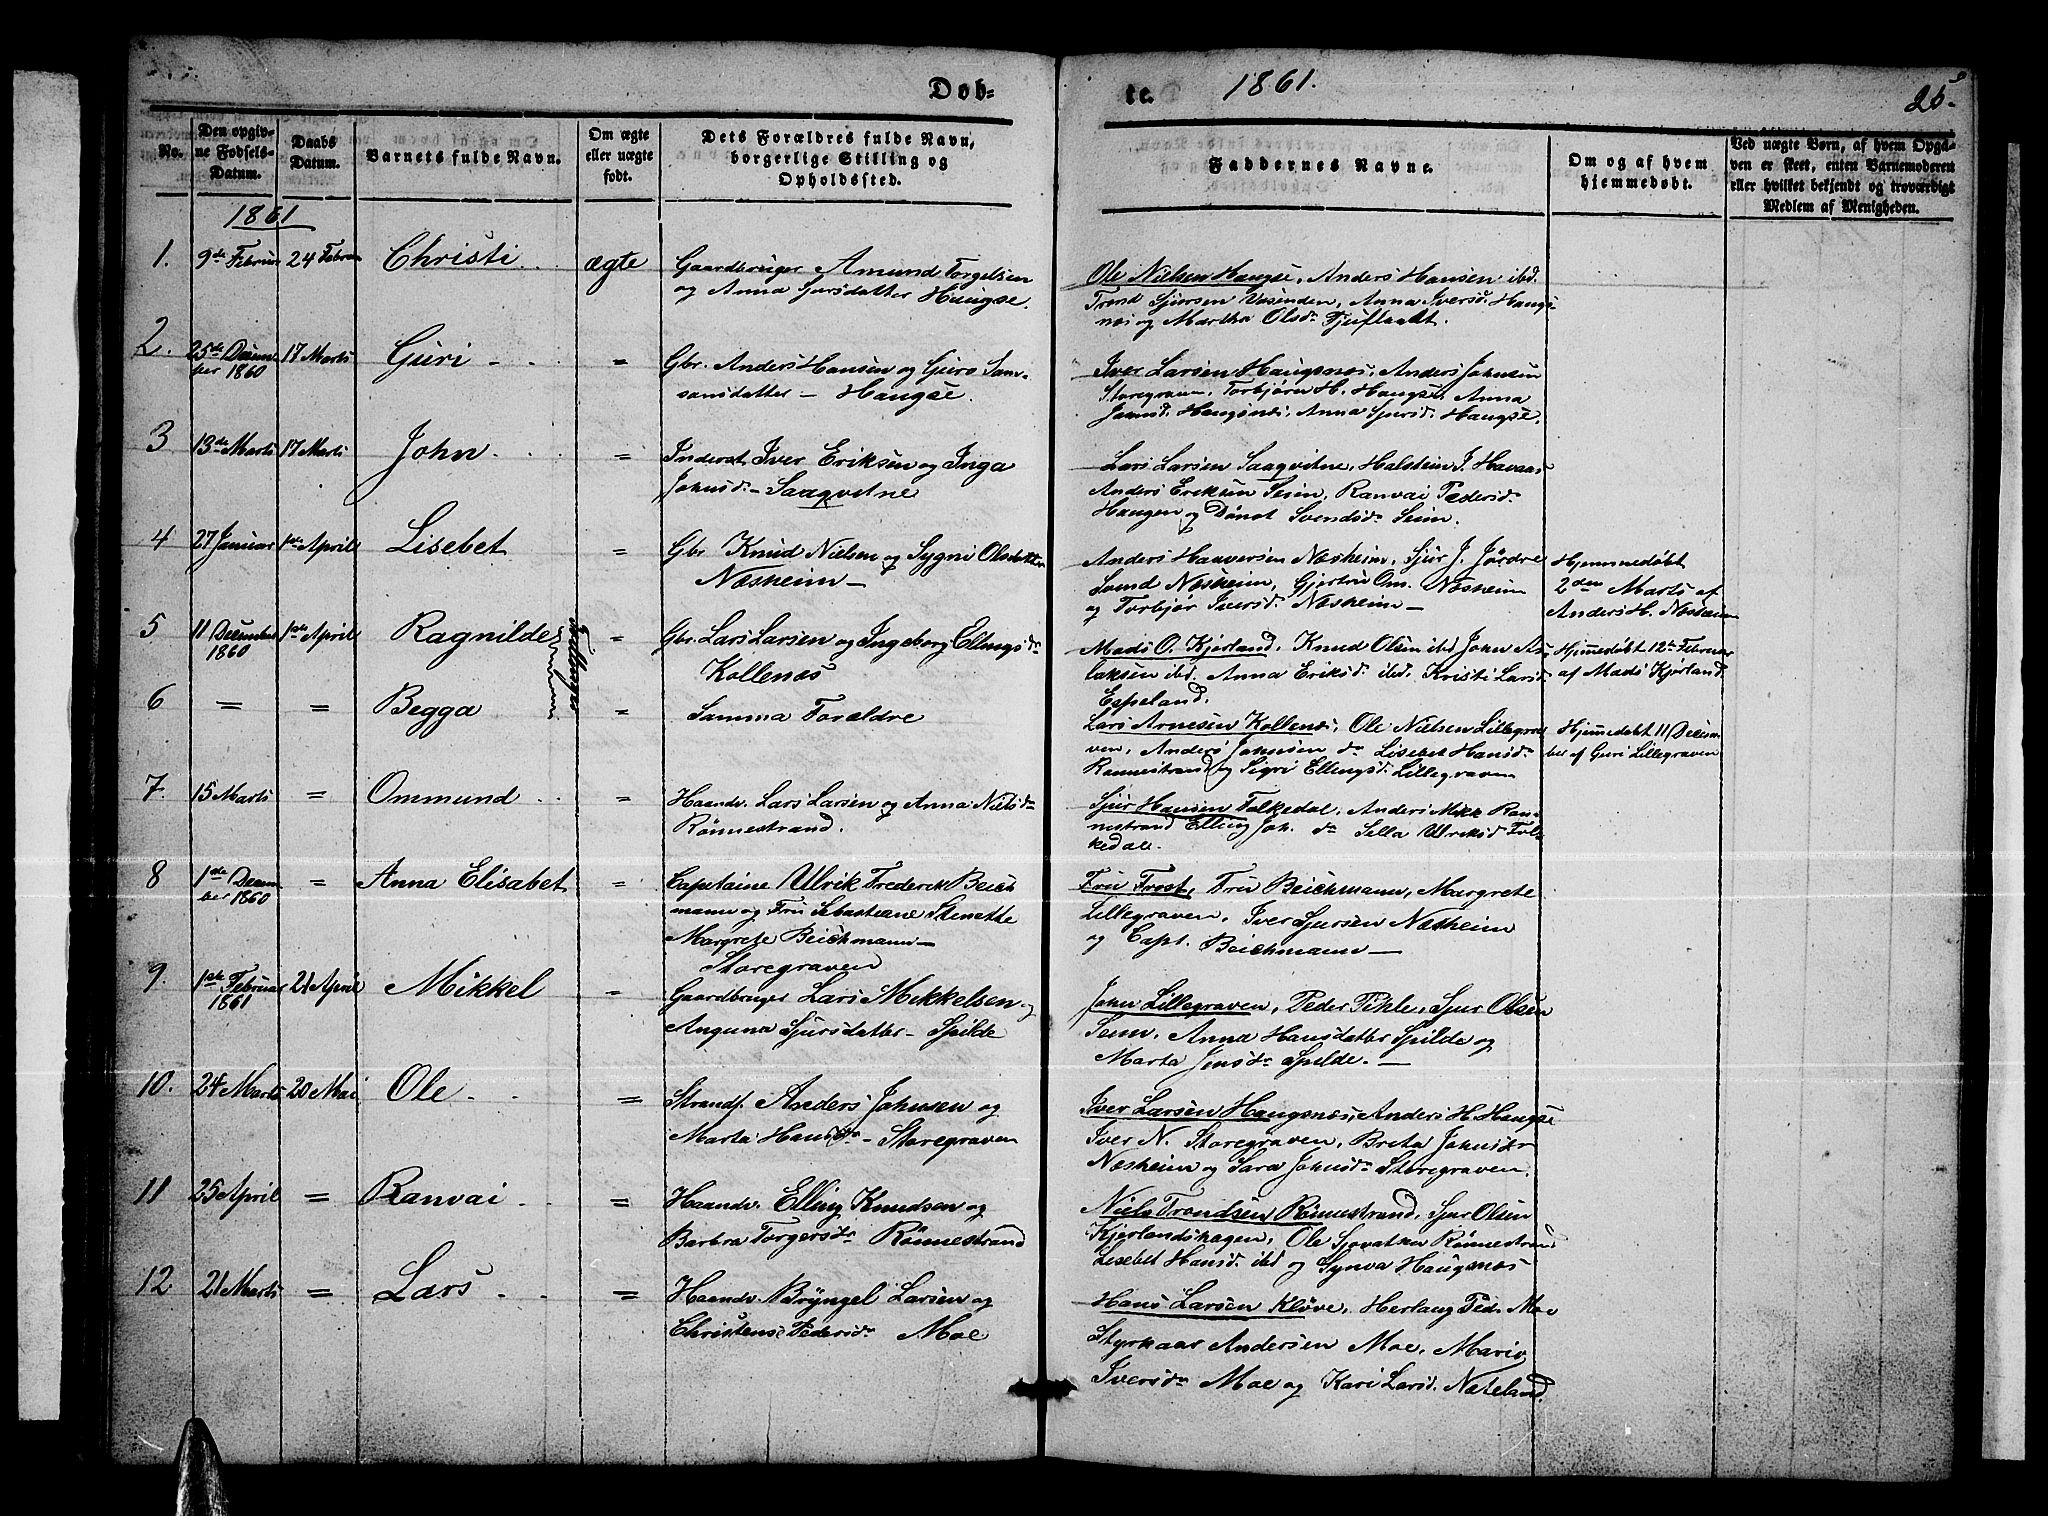 Døb-
te.
1861.
25.
No.
Den opgiv-
ne Fødsels-
Datum.
Daabs
Datum.
Barnets fulde Navn.
Om ægte
eller uægte
født.
Dets Forældres fulde Navn,
borgerlige Stilling og
Opholdssted.
Faddernes Navne.
Om og af hvem
hjemmedøbt.
Ved uægte Børn, af hvem Opga-
ven er skeet, enten Barnemoderen
eller hvilket bekjendt og troværdigt
Medlem af Menigheden.
1861
1. 9de Februar 24 Februar Christi ægte
Gaardbruger Amund Torgelsen
og Anna Sjursdatter Haugse.
Ole Nielsen Haugse, Anders Hansen ibd.
Trond Sjursen Vasenden, Anna Iversd. Haugs-
næs og Martha Olsdr Tjuflaalt.
2. 25de Decem- 17 Marts Guri =
ber 1860
Gbr. Anders Hansen og Guro Sam-
sonsdatter - Haugse.
Iver Larsen Haugsnæs, Anders Johnsen
Storegraven, Torbjørn H. Haugse, Anna
Haugsnæs, Anna Sjursd. Haugse.
3 13de Marts 17 Marts John =
Inderst Iver Eriksen og Inga
Johnsdr - Saaqvitne
Lars Larsen Saaqvitne, Halstein J. Havaas
Anders Eriksen Seim, Ranvai Pedersdr
Haugen og Dønot Svendsdr Seim.
4 27 Januar 1ste April Lisebet =
Gbr. Knud Nielsen og Sygni Olsdatter
Næsheim -
Anders Haaversen Næsheim, Sjur J. Jördre
Svend Næsheim, Gjertru Om. Næsheim
og Torbjør Iversd. Næsheim -
Hjemmedøbt
2den Marts af
Anders H. Næsheim
5 11 December 1ste April Ragnilde =
1860
Tvillinger
Gbr. Lars Larsen og Ingeborg Ellingsdr
Kollenæs
Mads O. Kjerland, Knud Olsen ibd John As-
laksen ibd. Anna Eriksd. ibd. Kristi Larsd.
Espeland.
Hjemmedøbt 12te Februar
af Mads Kjerland
6 = = Begga =
Samma Forældre
Lars Arnesen Kollenæs, Ole Nielsen Lillegra-
ven, Anders Johnsen do Lisebet Hansdr
Rønnestrand og Sigri Ellingsd. Lillegraven
Hjemmedøbt 11 Decem-
ber af Guri Lillegraven
7. 15 Marts = Ommund =
Haandv. Lars Larsen og Anna Nielsdr
Rönnestrand.
Sjur Hansen Folkedal, Anders Mikk Røn-
nestrand Elling Joh. do Sella Ulriksd Fol-
kedal.
8 1ste Decem- = Anna Elisabet =
ber 1860
Capitaine Ulrik Frederik Beich
mann og Fru Sebastiane Stenette
Margrete Beichmann -
Storegraven
Fru Frost, Fru Beichmann, Margrete
Lillegraven, Iver Sjursen Næsheim
og Capt. Beichmann -
9. 1ste Februar 21 April Mikkel =
1861
Gaardbruger Lars Mikkelsen og
Anguna Sjursdatter - Spilde
John Lillegraven, Peder Pihle, Sjur Olsen
Seim, Anna Hansdatter Spilde og
Marta Jensdr Spilde. -
10. 24 Marts 20 Mai Ole =
Strands. Anders Johnsen og
Marta Hansdr - Storegraven
Iver Larsen Haugsnæs, Anders H. Haugse
Iver N. Storegraven, Breta Johnsdr
Næsheim og Sara Johnsdr Storegraven.
11 25 April = Ranvai =
Haandv. Elling Knudsen og
Barbra Torgersdr Rönnestrand
Niels Trondsen Rønnestrand, Sjur Olsen
Kjerlandshagen, Ole Sjovatsen Rønnestrand
Lisebet Hansd. ibd og Synva Haugsnæs
12 21 Marts = Lars =
Haandv. Bryngel Larsen og
Christense Pedersdr Moe
Hans Larsen Kløve, Herlaug Ped. Moe
Styrkaar Andersen Moe, Mario
Iversdr Moe og Kari Larsd. Næteland.